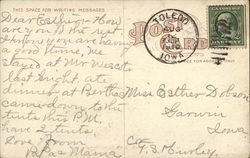 THIS SPACE FOR WRITING MESSAGES
Dear Esther - How
are you & the rest
I know you are having
a good time, we
stayed at Mr
last night ate
dinner at Berthas
came down to the
tents this P.M.
have 2 tents,
Love from
Papa & Mama
TOLEDO
AUG
IOWA
POST CARD
Miss Esther Dobson
Garwin
Iowa
C/o F.S. Hurley